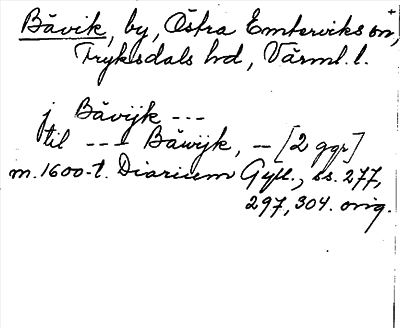 Båvik, by, Östra Emterviks sn,
Fryksdals hd, Värml. l.
j Båvijk ---
til --- Båwijk, — [2 ggr]
m. 1600-t. Diarium Gyll., ss. 277,
297, 304. orig.